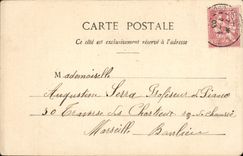 CARTE POSTALE
Ce côté est exclusivement réservé à l'adresse
Mademoiselle
Augustine Serra Professeur de Piano
30 Traverse des Chartreux
Marseille Banlieue